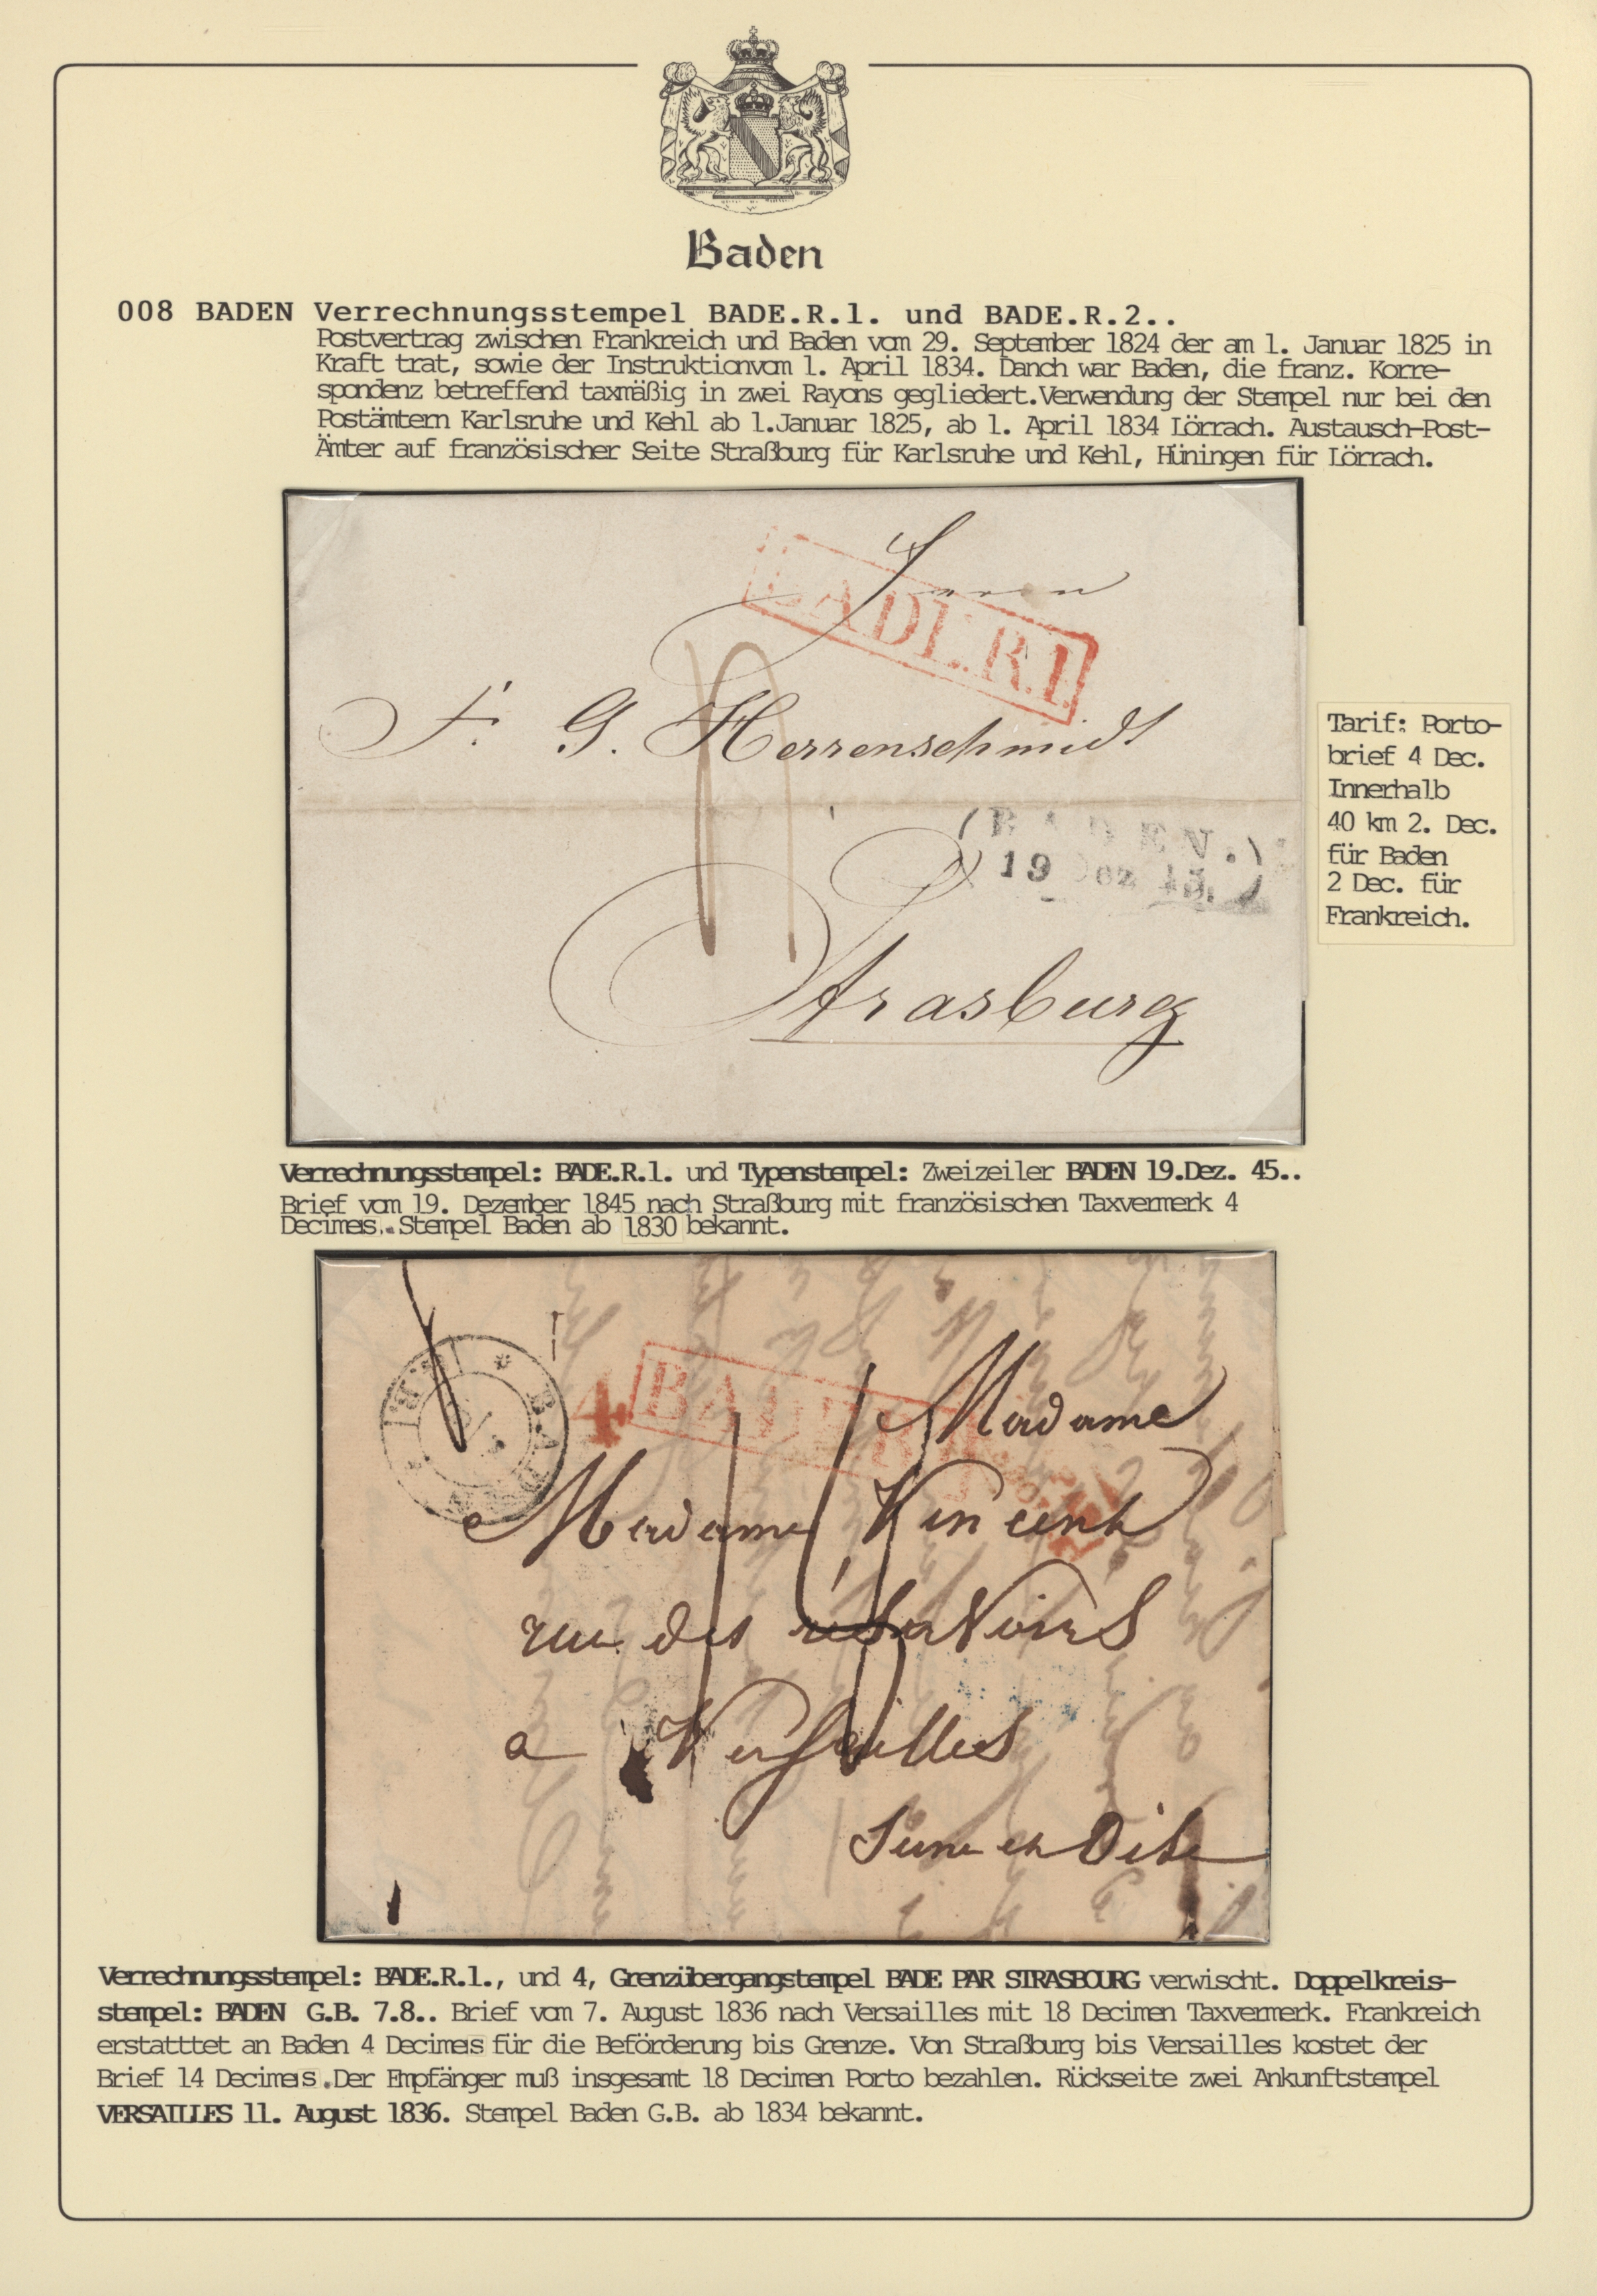 Baden
008 BADEN Verrechnungsstempel BADE.R.1. und BADE.R.2..
Postvertrag zwischen Frankreich und Baden vom 29. September 1824 der am 1. Januar 1825 in
Kraft trat, sowie der Instruktionvom 1. April 1834. Danch war Baden, die franz. Korre-
spondenz betreffend taxmäßig in zwei Rayons gegliedert.Verwendung der Stempel nur bei den
Postämtern Karlsruhe und Kehl ab 1.Januar 1825, ab 1. April 1834 Lörrach. Austausch-Post-
Ämter auf französischer Seite Straßburg für Karlsruhe und Kehl, Hüningen für Lörrach.
Herrn
BADE.R.1.
F. G. Herrenschmidt
(BADEN.)
19 Dez 45.
Strasburg
Tarif: Porto-
brief 4 Dec.
Innerhalb
40 km 2. Dec.
für Baden
2 Dec. für
Frankreich.
Verrechnungsstempel: BADE.R.1. und Typenstempel: Zweizeiler BADEN 19.Dez. 45..
Brief vom 19. Dezember 1845 nach Straßburg mit französischen Taxvermerk 4
Decimes. Stempel Baden ab 1830 bekannt.
4
BADE.R.1.
BADEN
Madame
Madame Vincent
rue des réservoirs
a Versailles
Seine et Oise
Verrechnungsstempel: BADE.R.1., und 4, Grenzübergangstempel BADE PAR STRASBOURG verwischt. Doppelkreis-
stempel: BADEN G.B. 7.8.. Brief vom 7. August 1836 nach Versailles mit 18 Decimen Taxvermerk. Frankreich
erstatttet an Baden 4 Decimes für die Beförderung bis Grenze. Von Straßburg bis Versailles kostet der
Brief 14 Decimes.Der Empfänger muß insgesamt 18 Decimen Porto bezahlen. Rückseite zwei Ankunftstempel
VERSAILLES 11. August 1836. Stempel Baden G.B. ab 1834 bekannt.